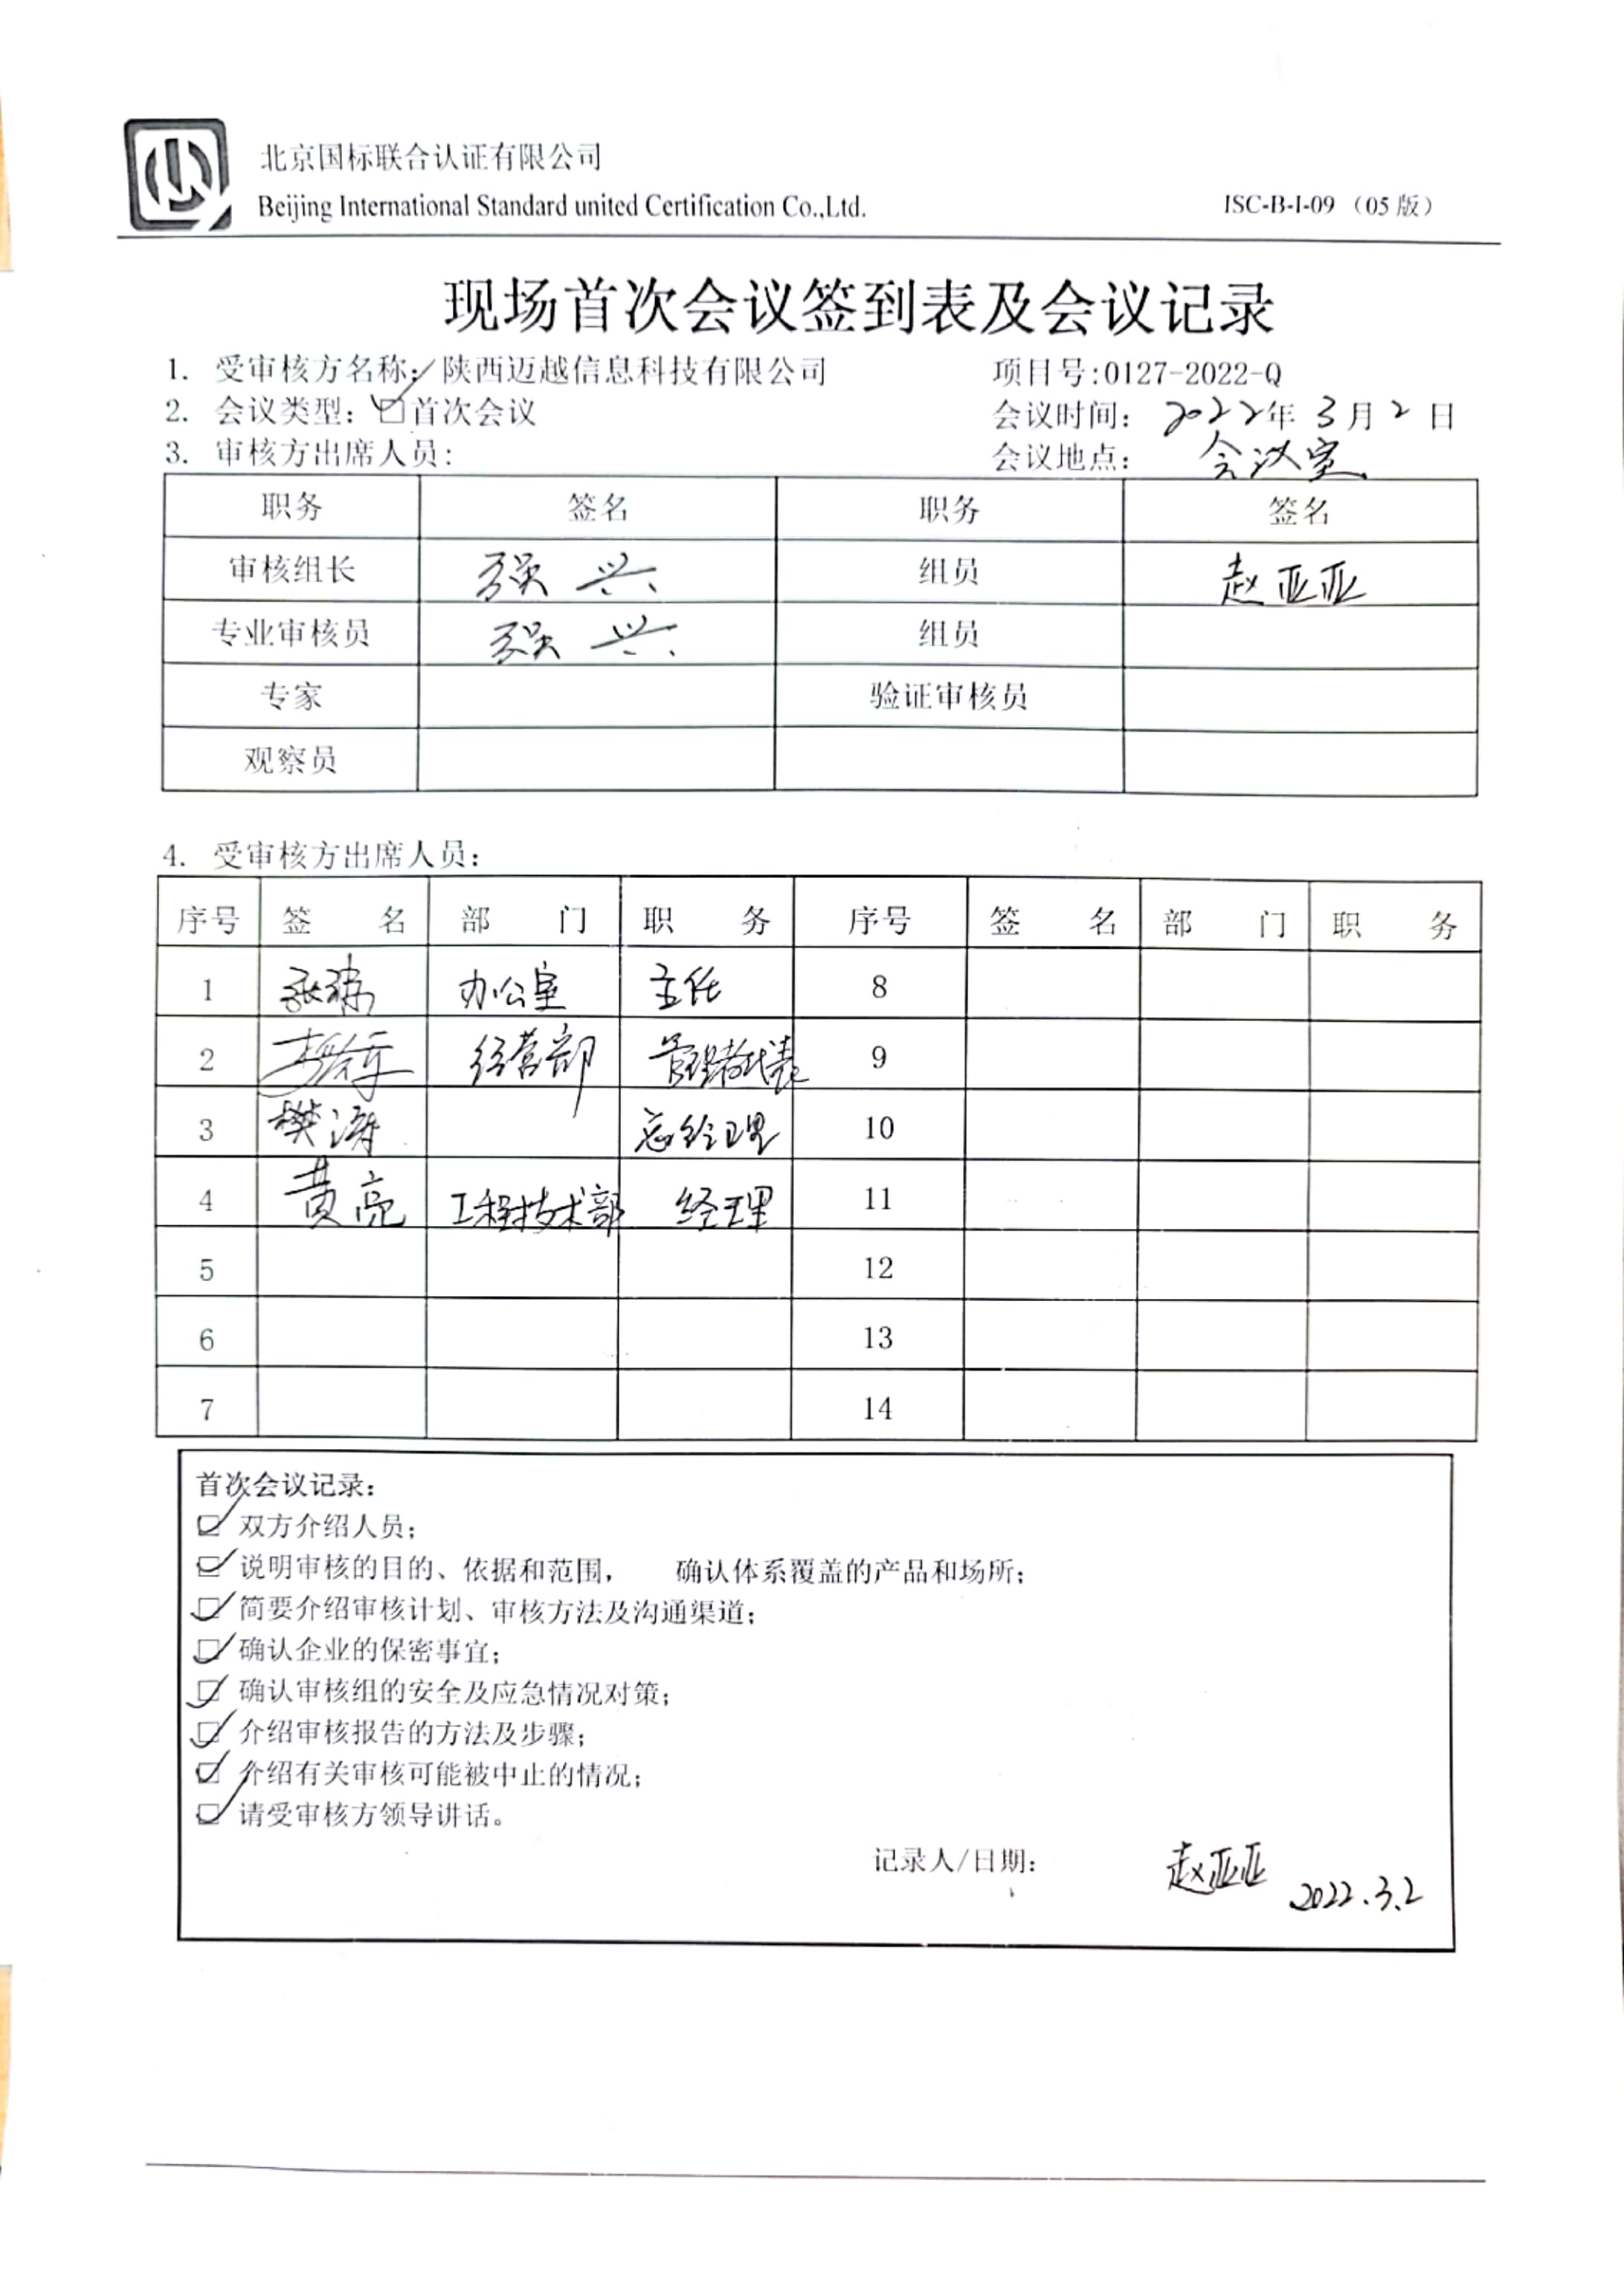 北京国标联合认证有限公司
Beijing International Standard united Certification Co.,Ltd.
ISC-B-I-09 （05 版）
现场首次会议签到表及会议记录
1. 受审核方名称：陕西迈越信息科技有限公司 项目号:0127-2022-Q
2. 会议类型：☑首次会议 会议时间： 2022年 3月 2 日
3. 审核方出席人员： 会议地点： 会议室
职务 签名 职务 签名
审核组长 强兴 组员 赵亚亚
专业审核员 强兴 组员
专家 验证审核员
观察员
4. 受审核方出席人员：
序号 签 名 部 门 职 务 序号 签 名 部 门 职 务
1 办公室 主任 8
2 经营部 管理者代表 9
3 樊涛 总经理 10
4 黄亮 工程技术部 经理 11
5 12
6 13
7 14
首次会议记录：
☑ 双方介绍人员；
☑ 说明审核的目的、依据和范围， 确认体系覆盖的产品和场所；
☑ 简要介绍审核计划、审核方法及沟通渠道；
☑ 确认企业的保密事宜；
☑ 确认审核组的安全及应急情况对策；
☑ 介绍审核报告的方法及步骤；
☑ 介绍有关审核可能被中止的情况；
☑ 请受审核方领导讲话。
记录人/日期： 赵亚亚 2022.3.2